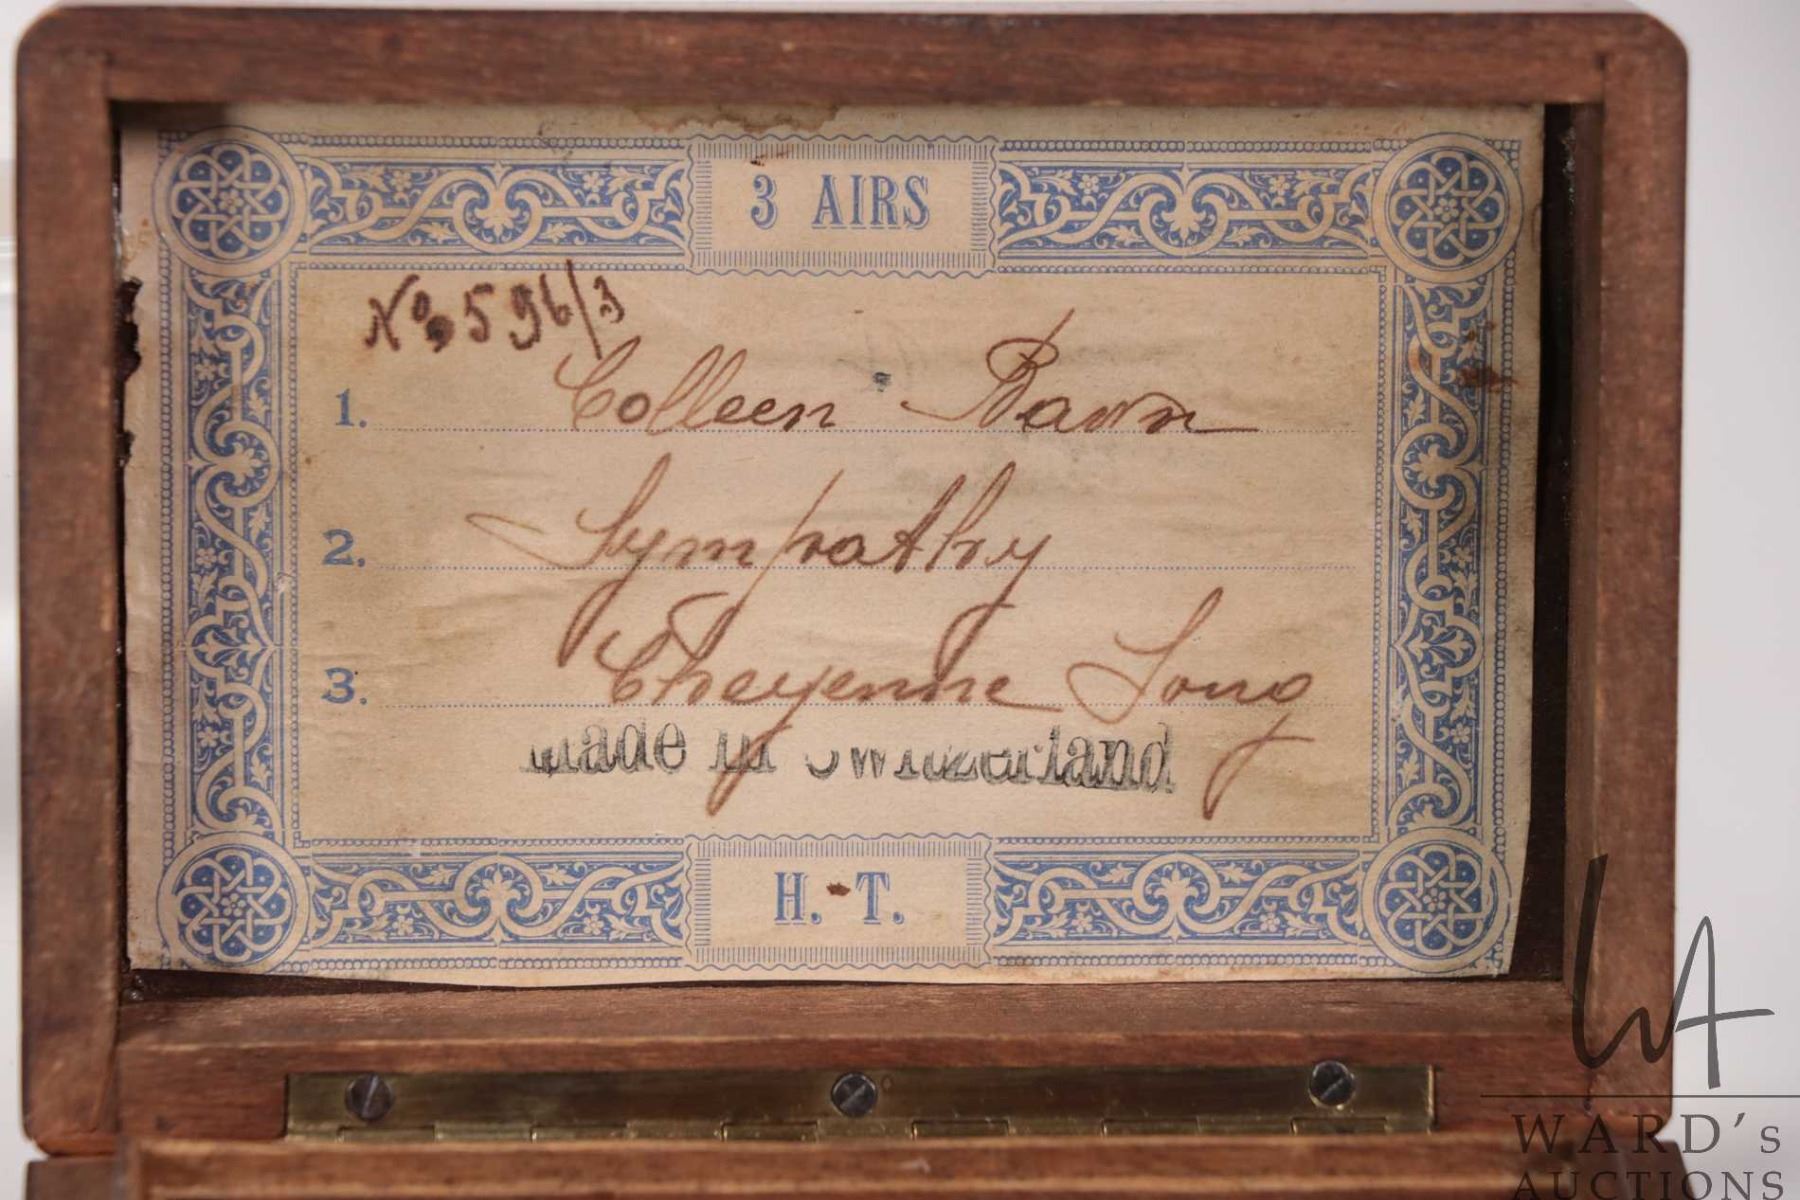 3 AIRS
No. 596/3
1. Colleen Bawn
2. Sympathy
3. Cheyenne Song
Made in Switzerland
H. T.
WA
WARD'S
AUCTIONS